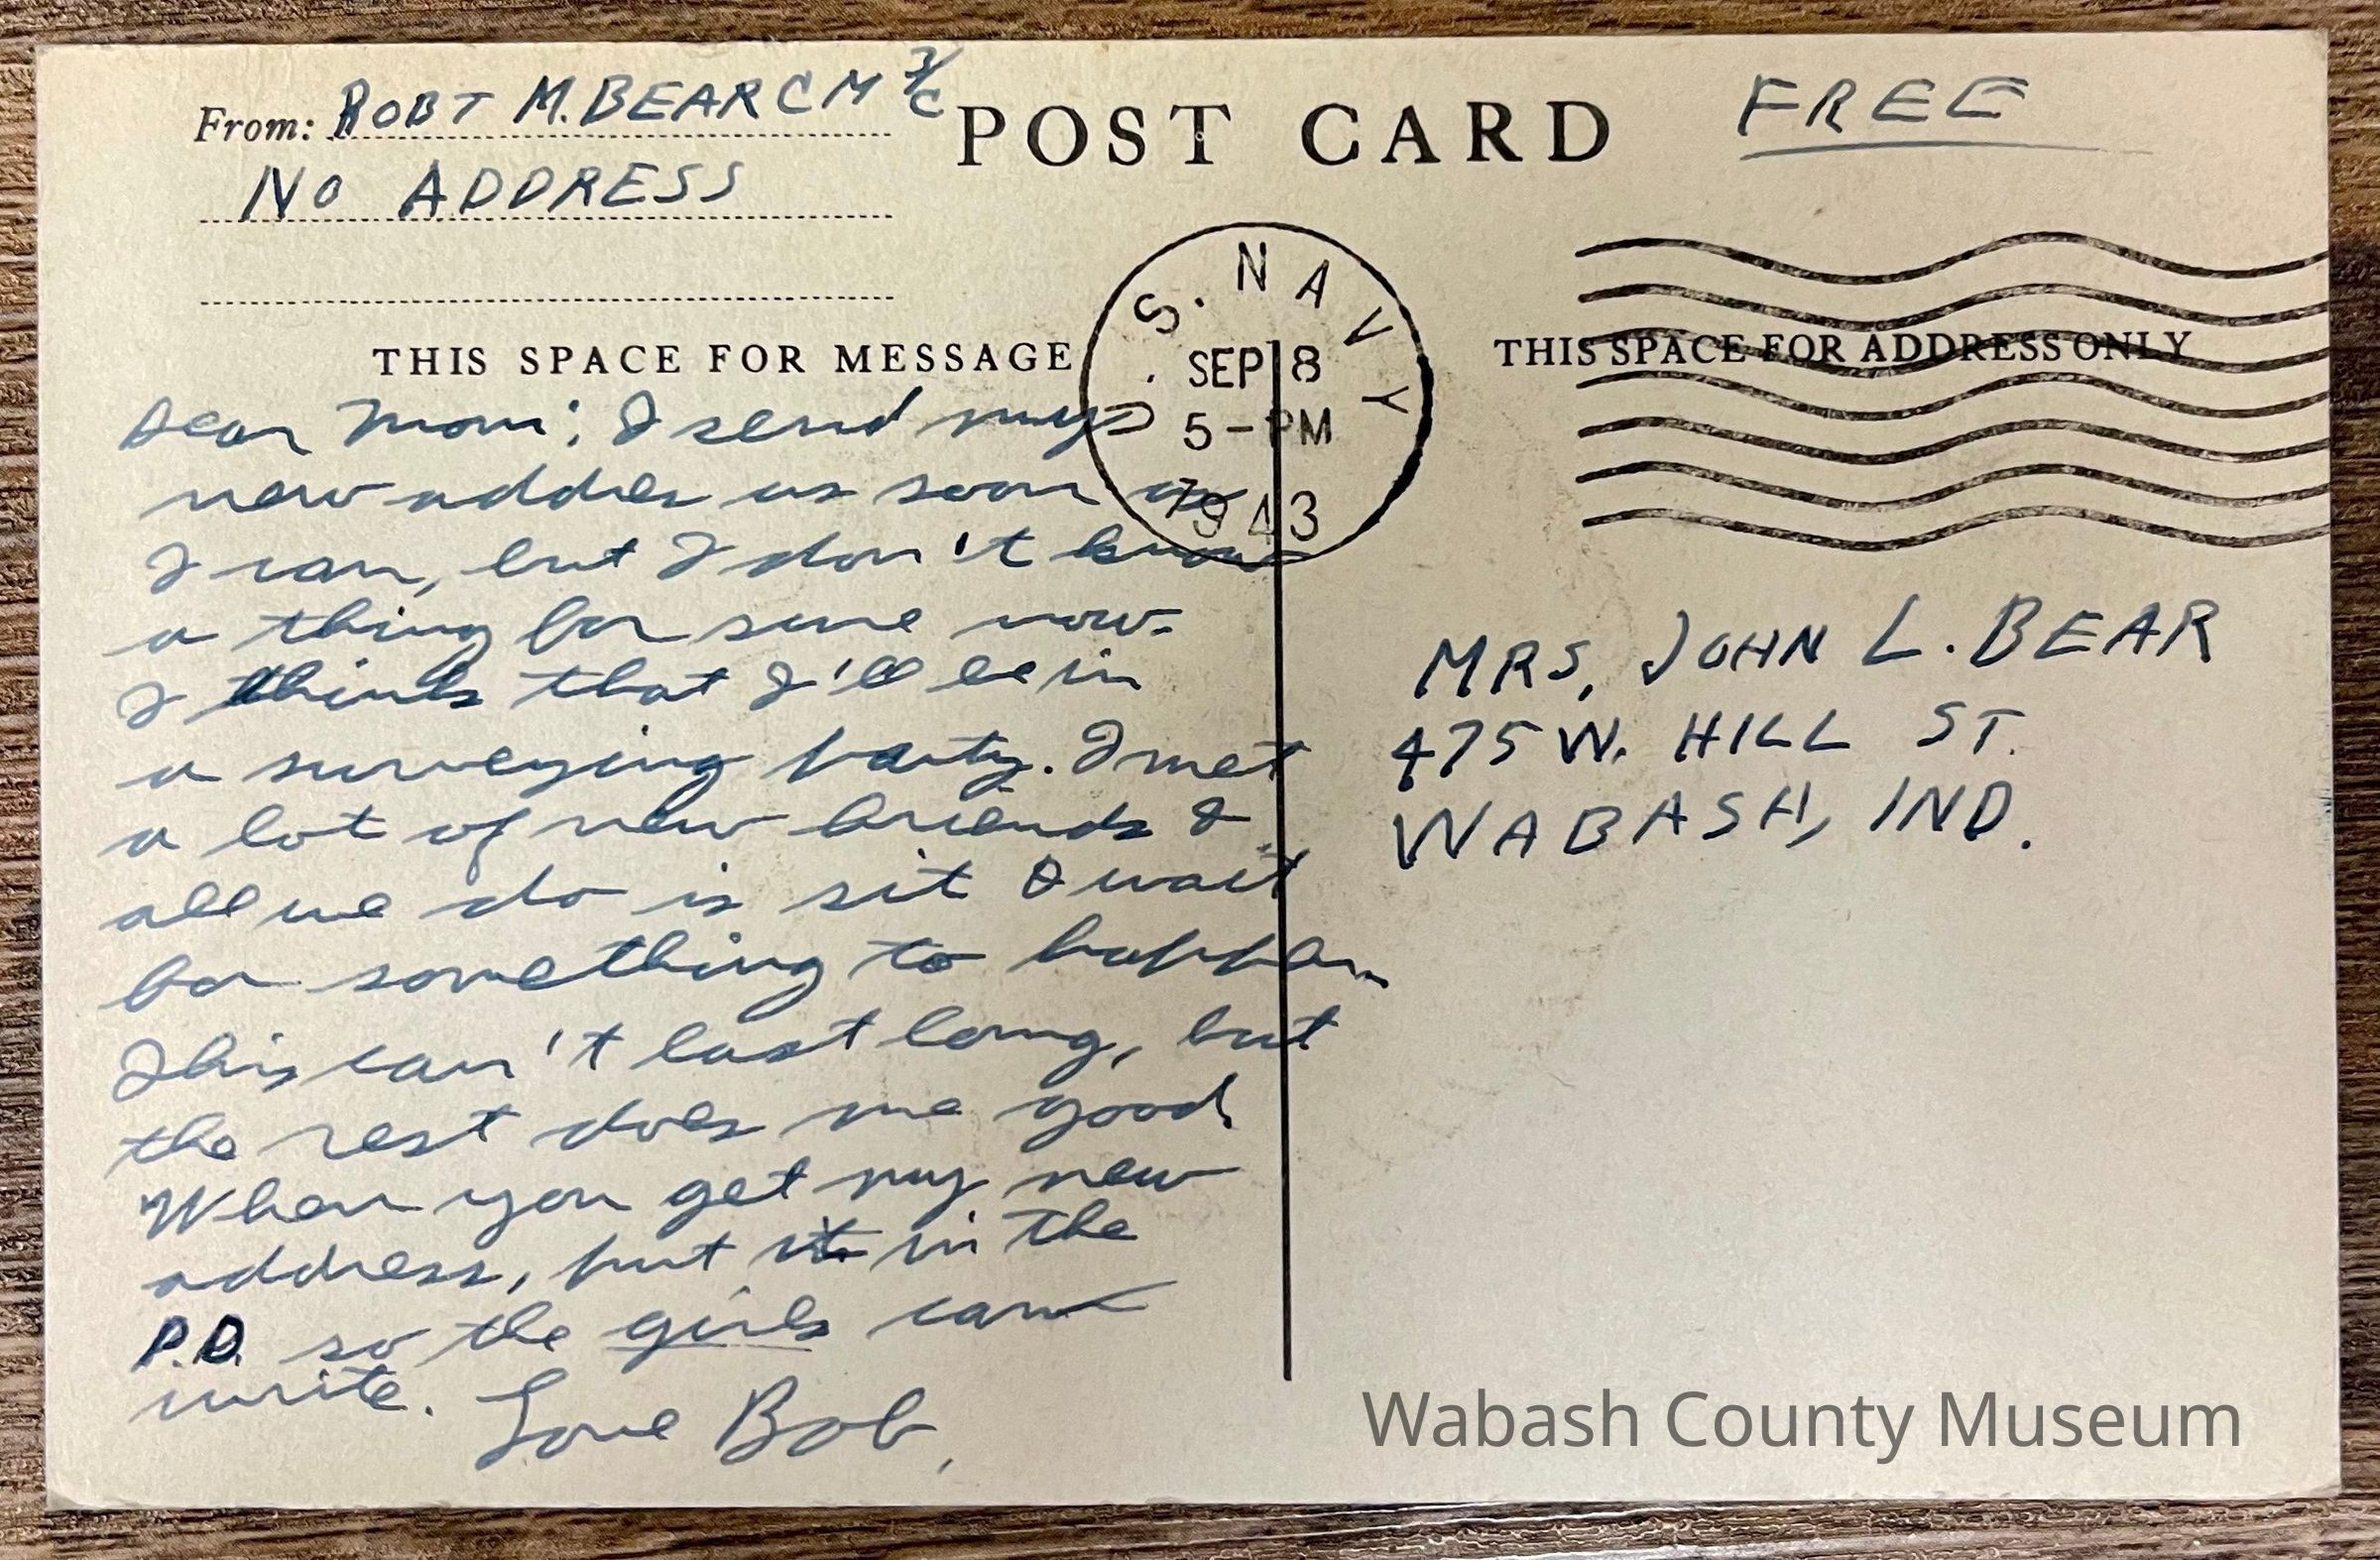 From: ROBT M. BEAR CM 3/C
NO ADDRESS
POST CARD
FREE
U.S. NAVY
SEP 8
5-PM
1943
THIS SPACE FOR MESSAGE
THIS SPACE FOR ADDRESS ONLY
Dear Mom; I send my
new addres as soon as
I can, but I don't know
a thing for sure now.
I think that I'll be in
a surveying party. I met
a lot of new friends &
all we do is sit & wait
for something to happen
This can't last long, but
the rest does me good
When you get my new
address, put it in the
P.D. so the girls can
write. Love Bob,
MRS. JOHN L. BEAR
475 W. HILL ST.
WABASH, IND.
Wabash County Museum